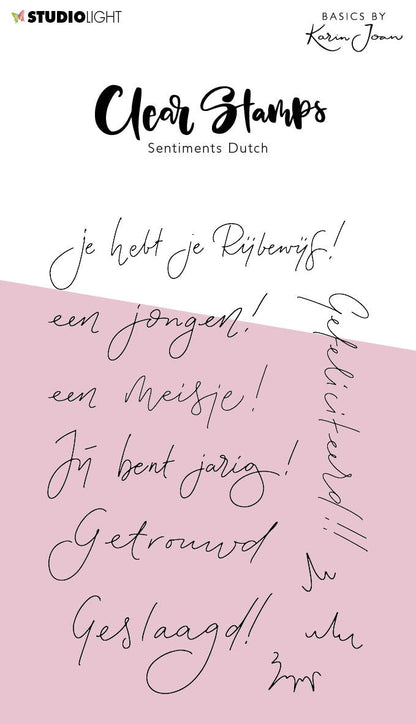 STUDIOLIGHT
BASICS BY
Karin Joan
Clear Stamps
Sentiments Dutch
je hebt je Rijbewijs!
een jongen!
een meisje!
Jij bent jarig!
Getrouwd
Geslaagd!
Gefeliciteerd!!